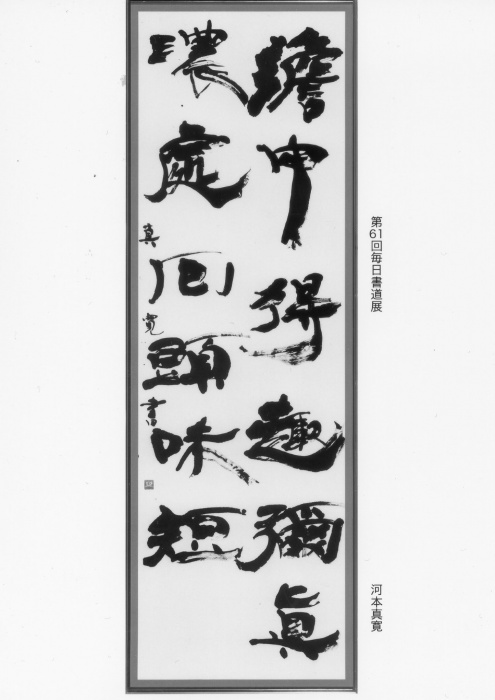 第61回毎日書道展
河本真寛
澹中得趣彌眞
濃處回頭味短
真寛書